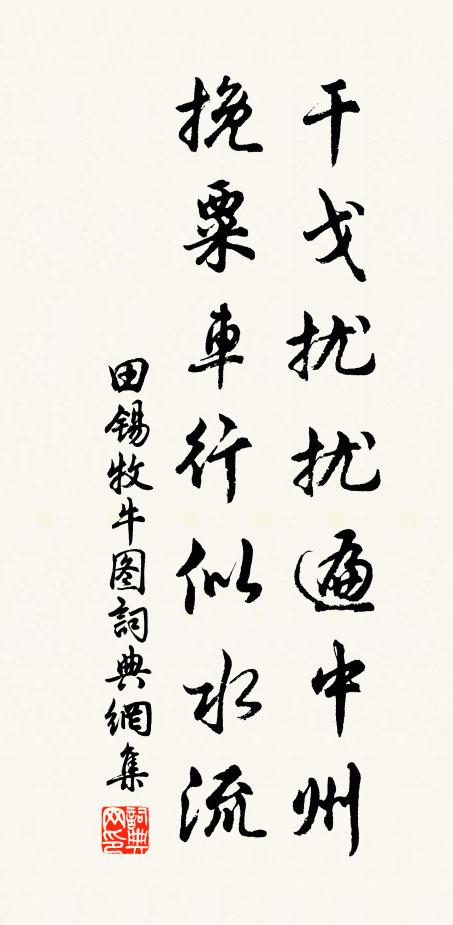 干戈扰扰遍中州
挽粟車行似水流
田锡牧牛图詞典網集
詞典网印